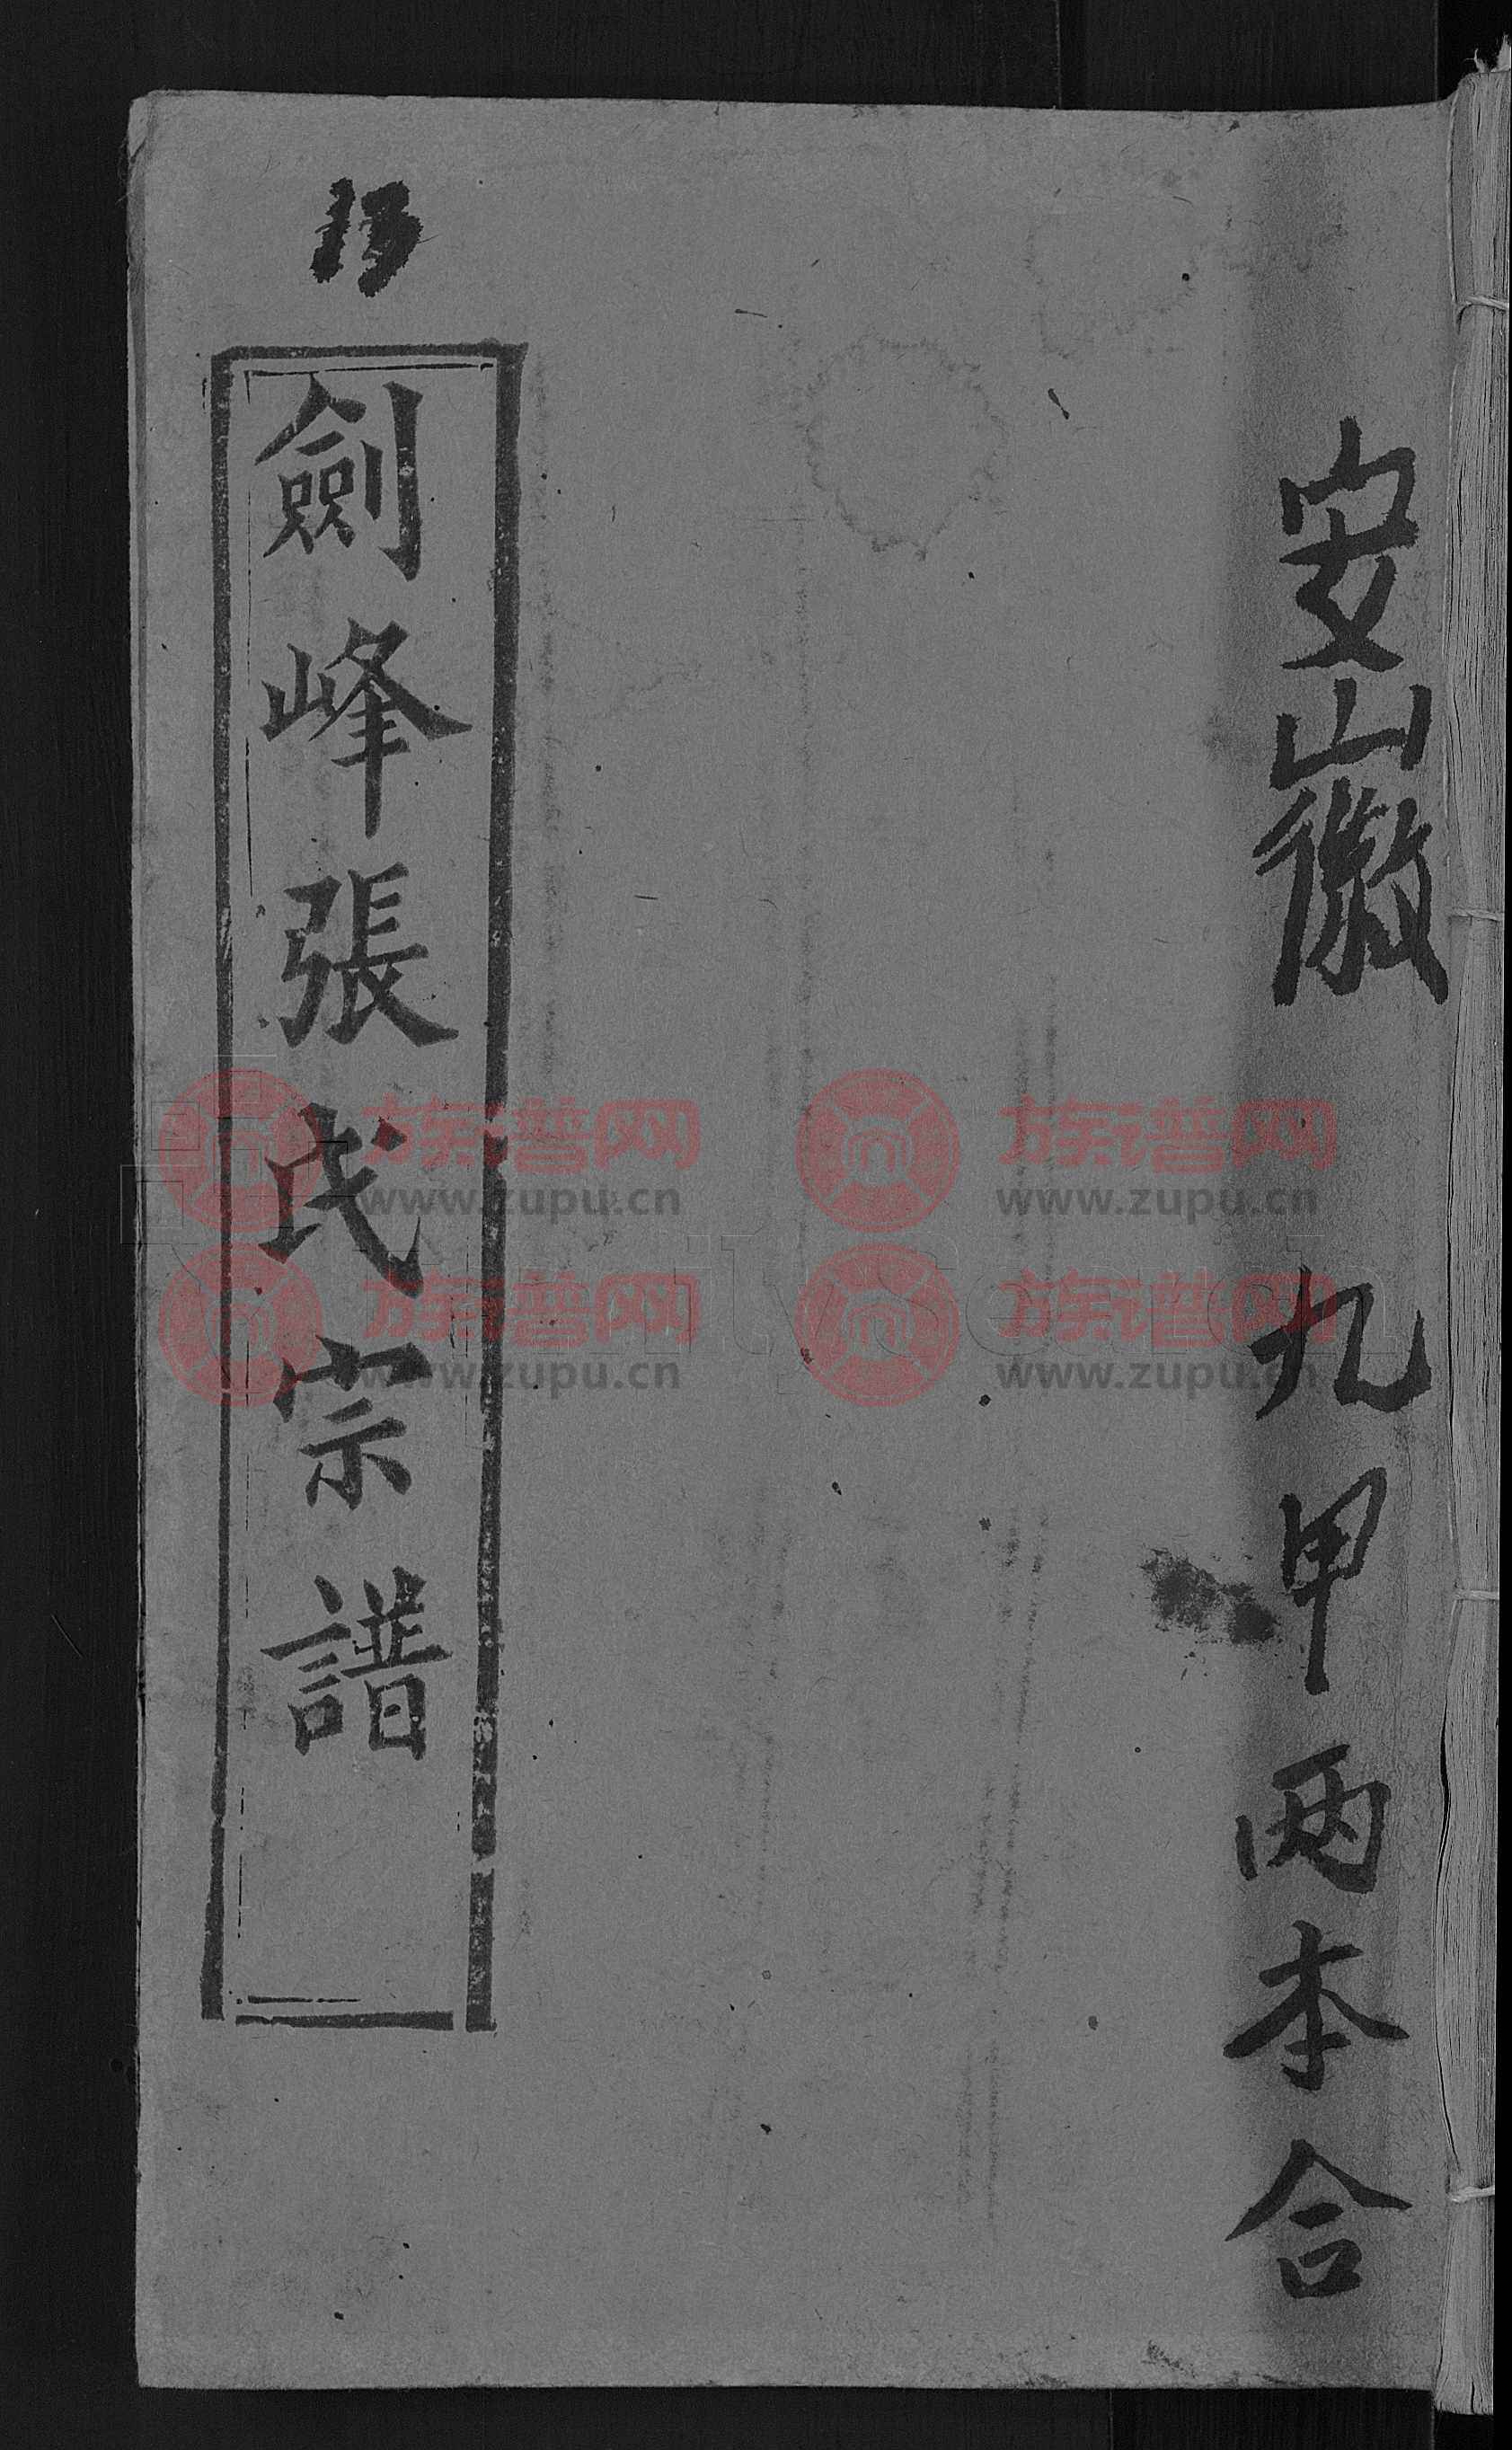 安徽 九甲兩本合
13
劍峰張氏宗譜
族谱网 族谱网
www.zupu.cn www.zupu.cn
族谱网 族谱网
www.zupu.cn www.zupu.cn